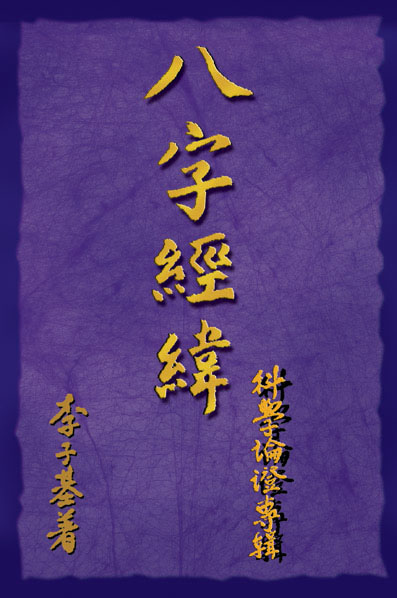 八字經緯
科學論證專輯
李子基著